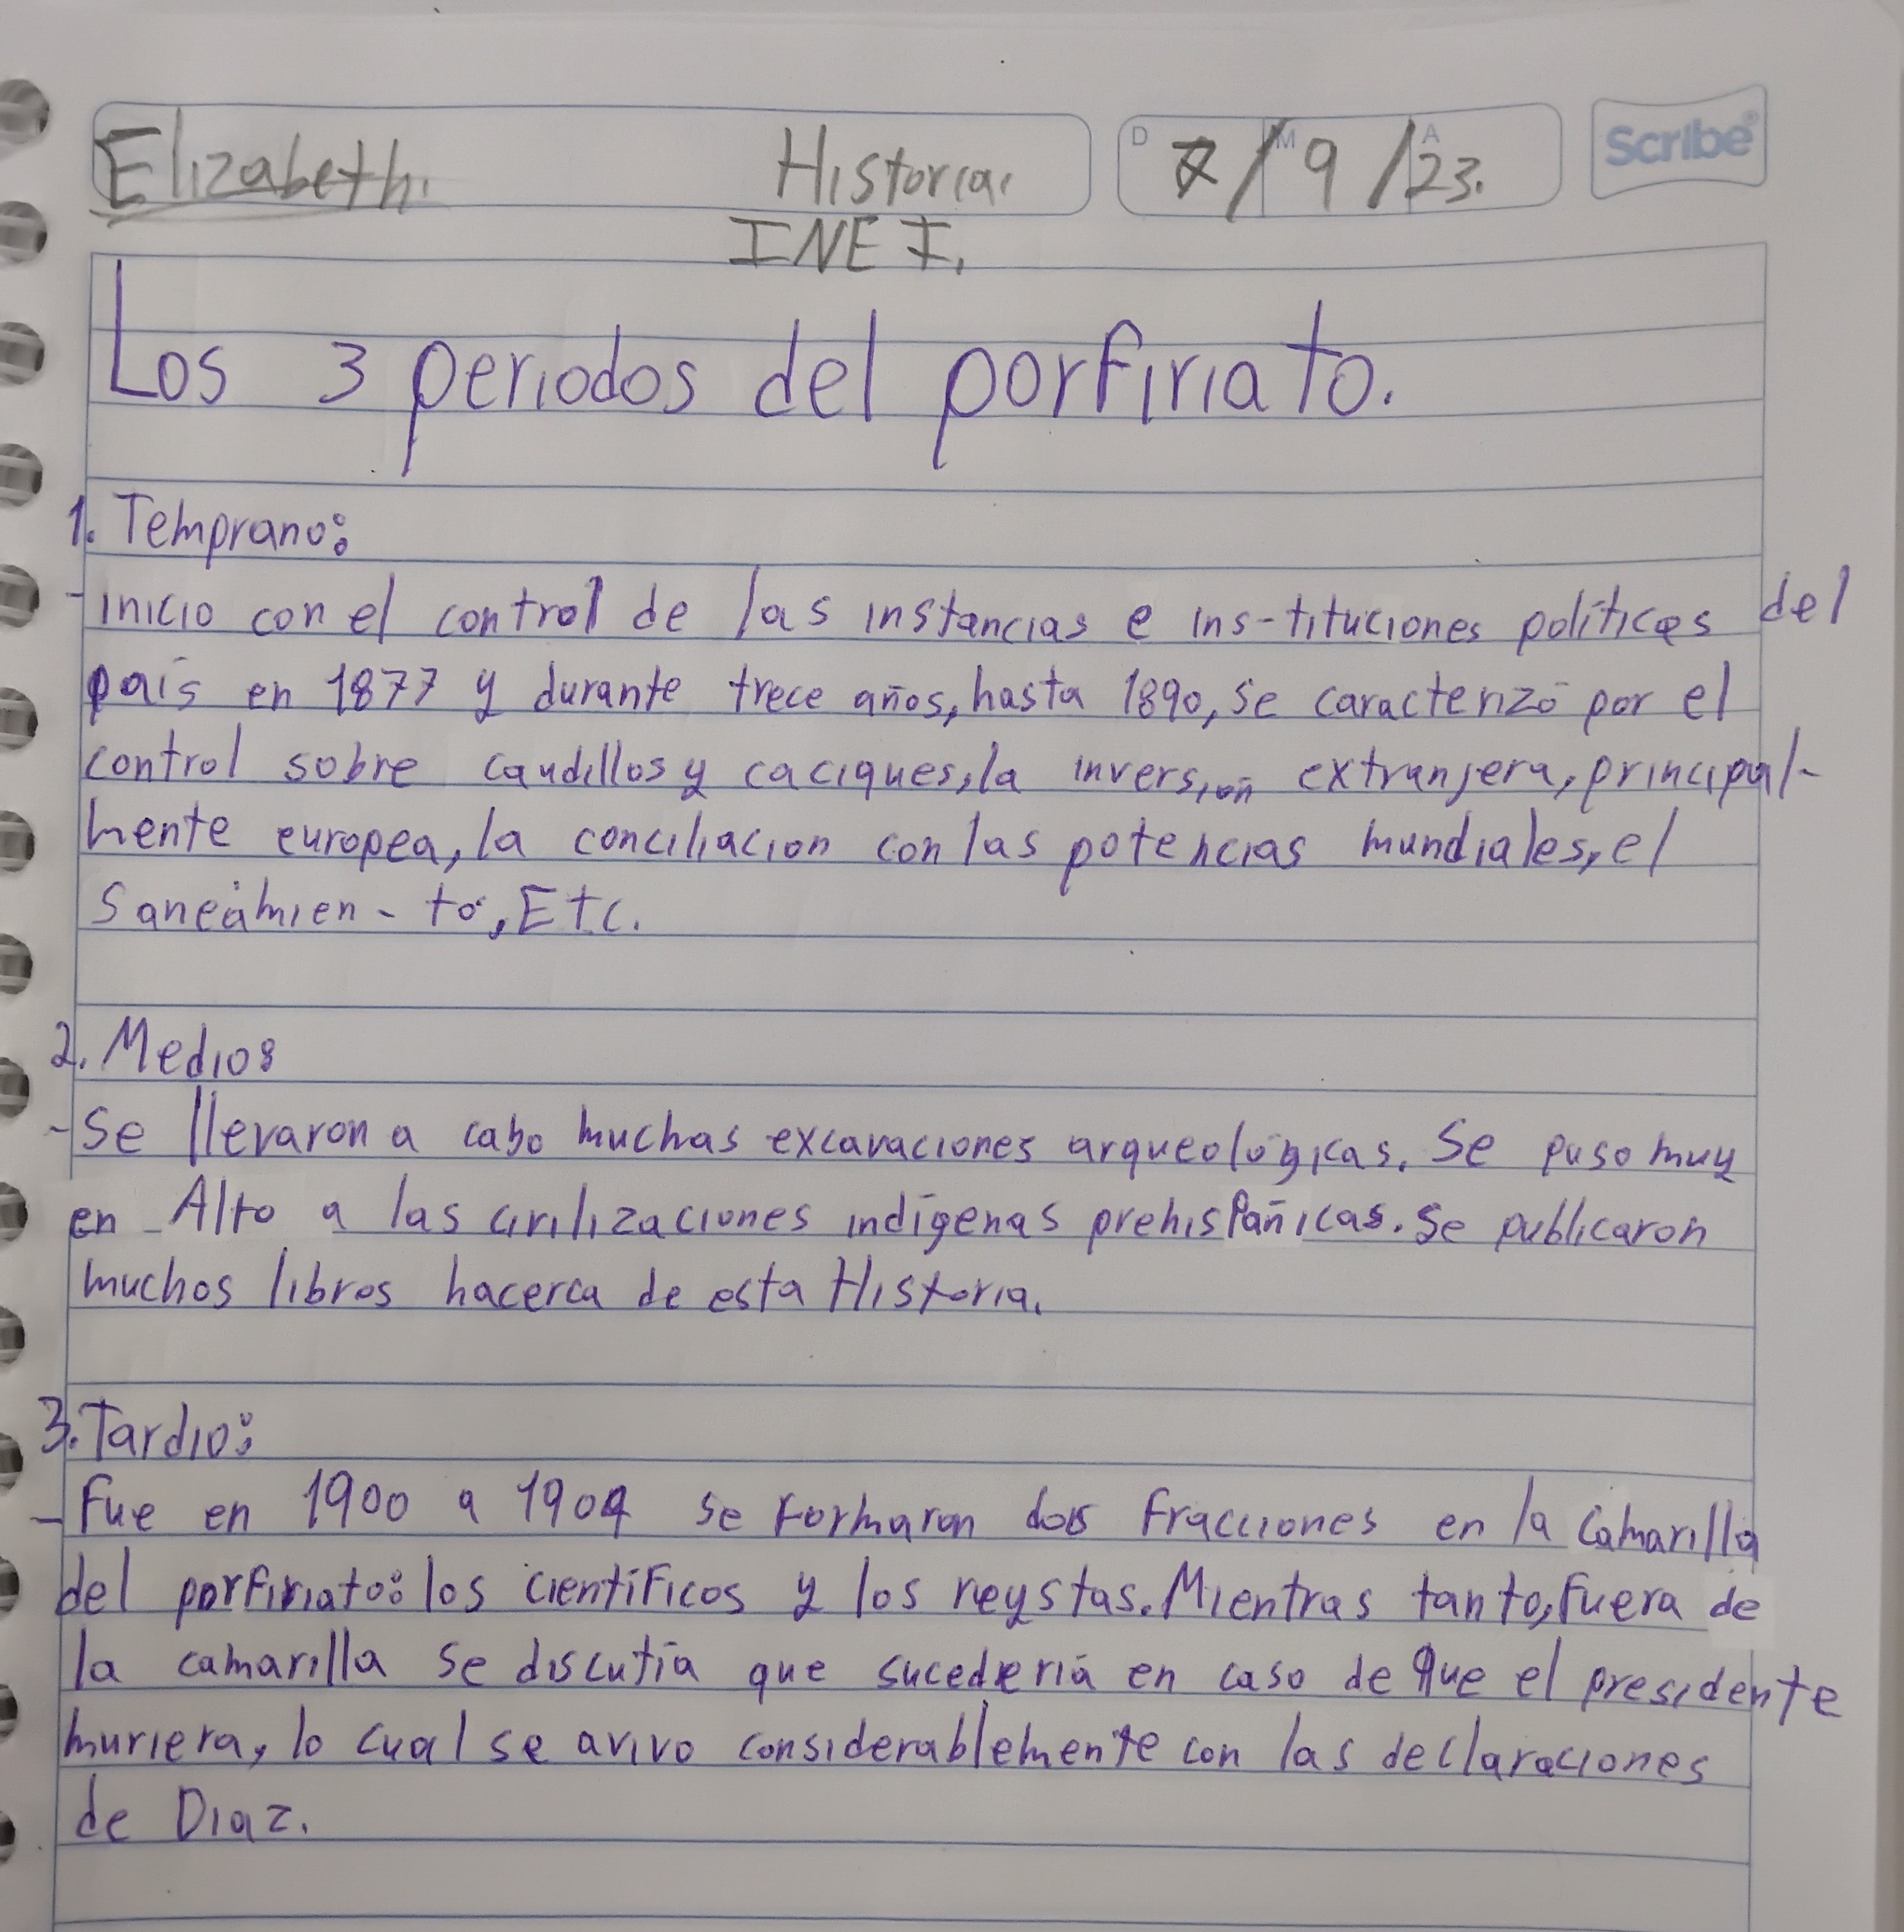 Elizabeth. Historia. D 7 / M 9 / A 23. Scribe®
INE I.
Los 3 periodos del porfiriato.
1. Temprano:
-inicio con el control de las instancias e ins-tituciones políticas del
país en 1877 y durante trece años, hasta 1890, se caracterizó por el
control sobre caudillos y caciques, la inversión extranjera, principal-
mente europea, la conciliacion con las potencias mundiales, el
Saneámien - to, Etc.
2. Medio:
-Se llevaron a cabo muchas excavaciones arqueológicas. Se puso muy
en Alto a las civilizaciones indígenas prehispánicas. Se publicaron
muchos libros hacerca de esta Historia.
3. Tardio:
-Fue en 1900 a 1904 se formaron dos fracciones en la Camarilla
del porfiriato: los científicos y los reystas. Mientras tanto, fuera de
la camarilla se discutía que sucedería en caso de que el presidente
muriera, lo cual se avivo considerablemente con las declaraciones
de Diaz.